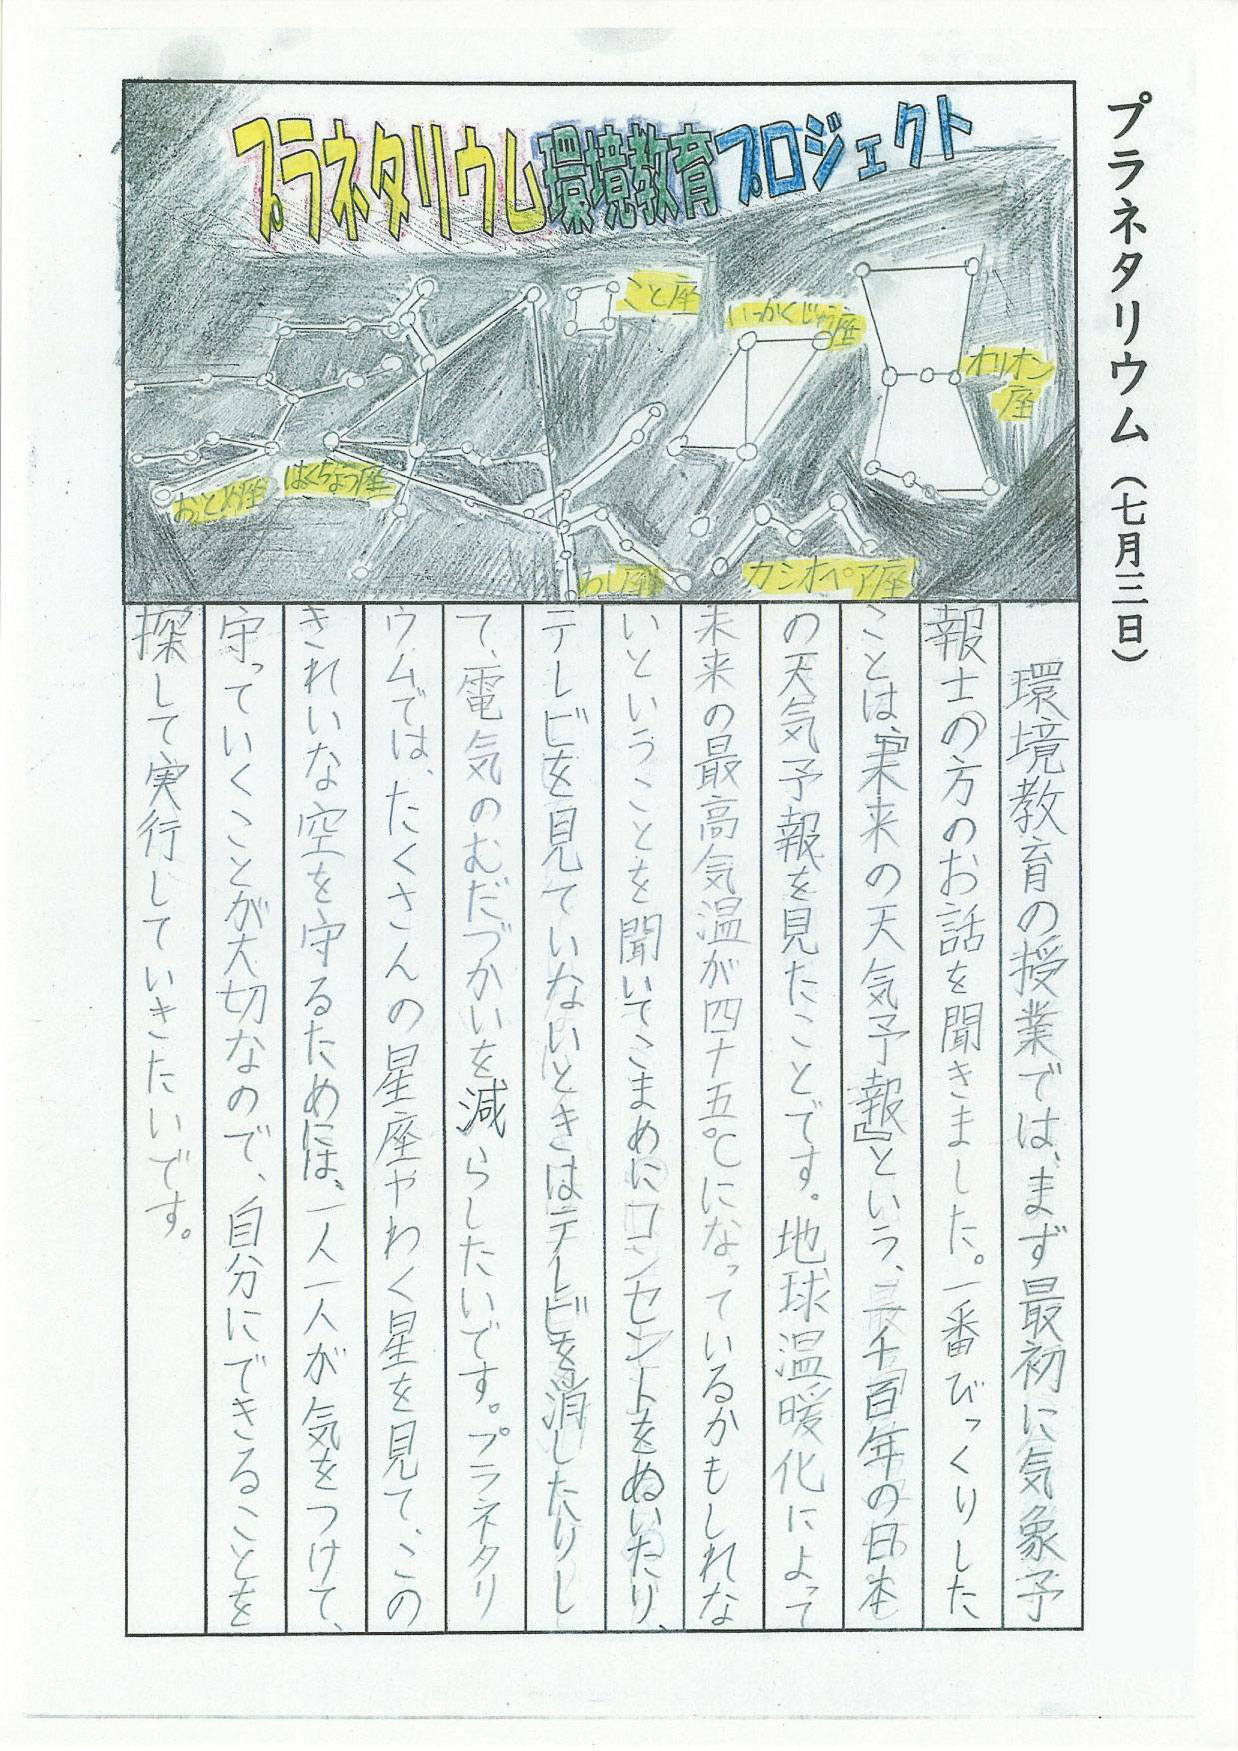 プラネタリウム（七月三日）
プラネタリウム環境教育プロジェクト
こと座
いっかくじゅう座
オリオン座
おとめ座
はくちょう座
わし座
カシオペア座
環境教育の授業では、まず最初に気象予
報士の方のお話を聞きました。一番びっくりした
ことは、『未来の天気予報』という、二千百年の日本
の天気予報を見たことです。地球温暖化によって
未来の最高気温が四十五℃になっているかもしれな
いということを聞いてこまめにコンセントをぬいたり、
テレビを見ていないときはテレビを消したりし
て、電気のむだづかいを減らしたいです。プラネタリ
ウムでは、たくさんの星座やわく星を見て、この
きれいな空を守るためには、一人一人が気をつけて、
守っていくことが大切なので、自分にできることを
探して実行していきたいです。